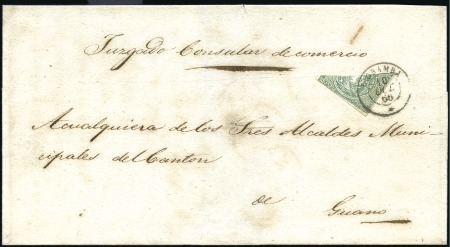 Juzgado Consular de comercio
A cualquiera de los Tres Alcaldes Muni-
cipales del Canton
de
Guano